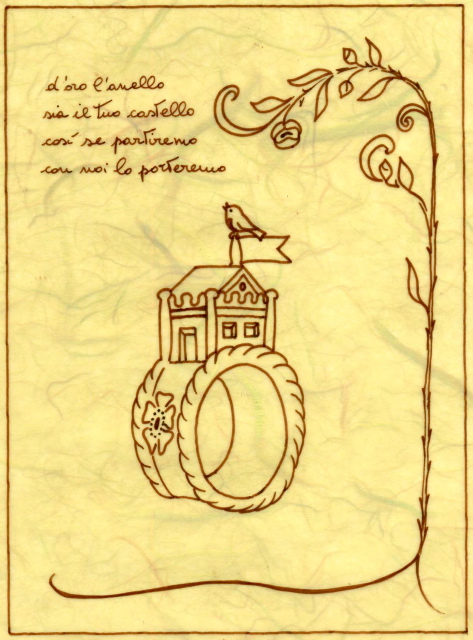 d'oro l'anello
sia il tuo castello
così se partiremo
con noi lo porteremo